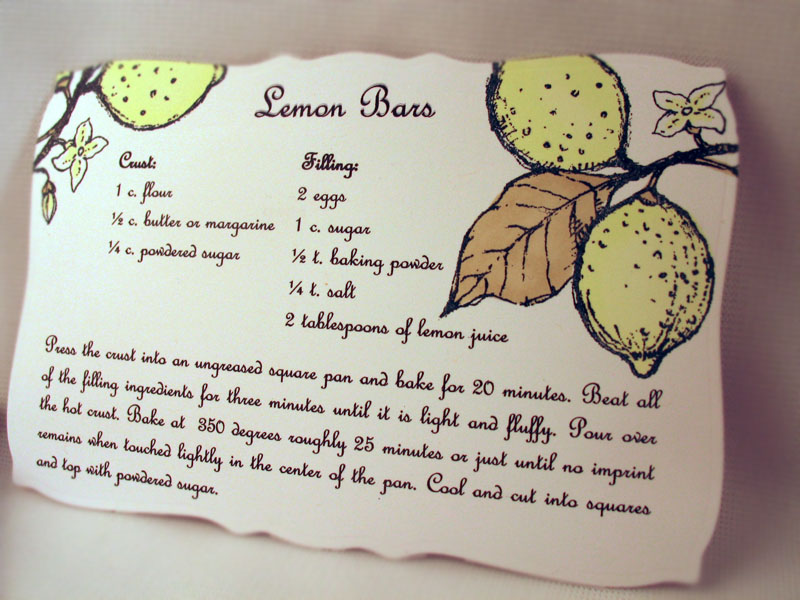 Lemon Bars
Crust:
1 c. flour
½ c. butter or margarine
¼ c. powdered sugar
Filling:
2 eggs
1 c. sugar
½ t. baking powder
¼ t. salt
2 tablespoons of lemon juice
Press the crust into an ungreased square pan and bake for 20 minutes. Beat all
of the filling ingredients for three minutes until it is light and fluffy. Pour over
the hot crust. Bake at 350 degrees roughly 25 minutes or just until no imprint
remains when touched lightly in the center of the pan. Cool and cut into squares
and top with powdered sugar.